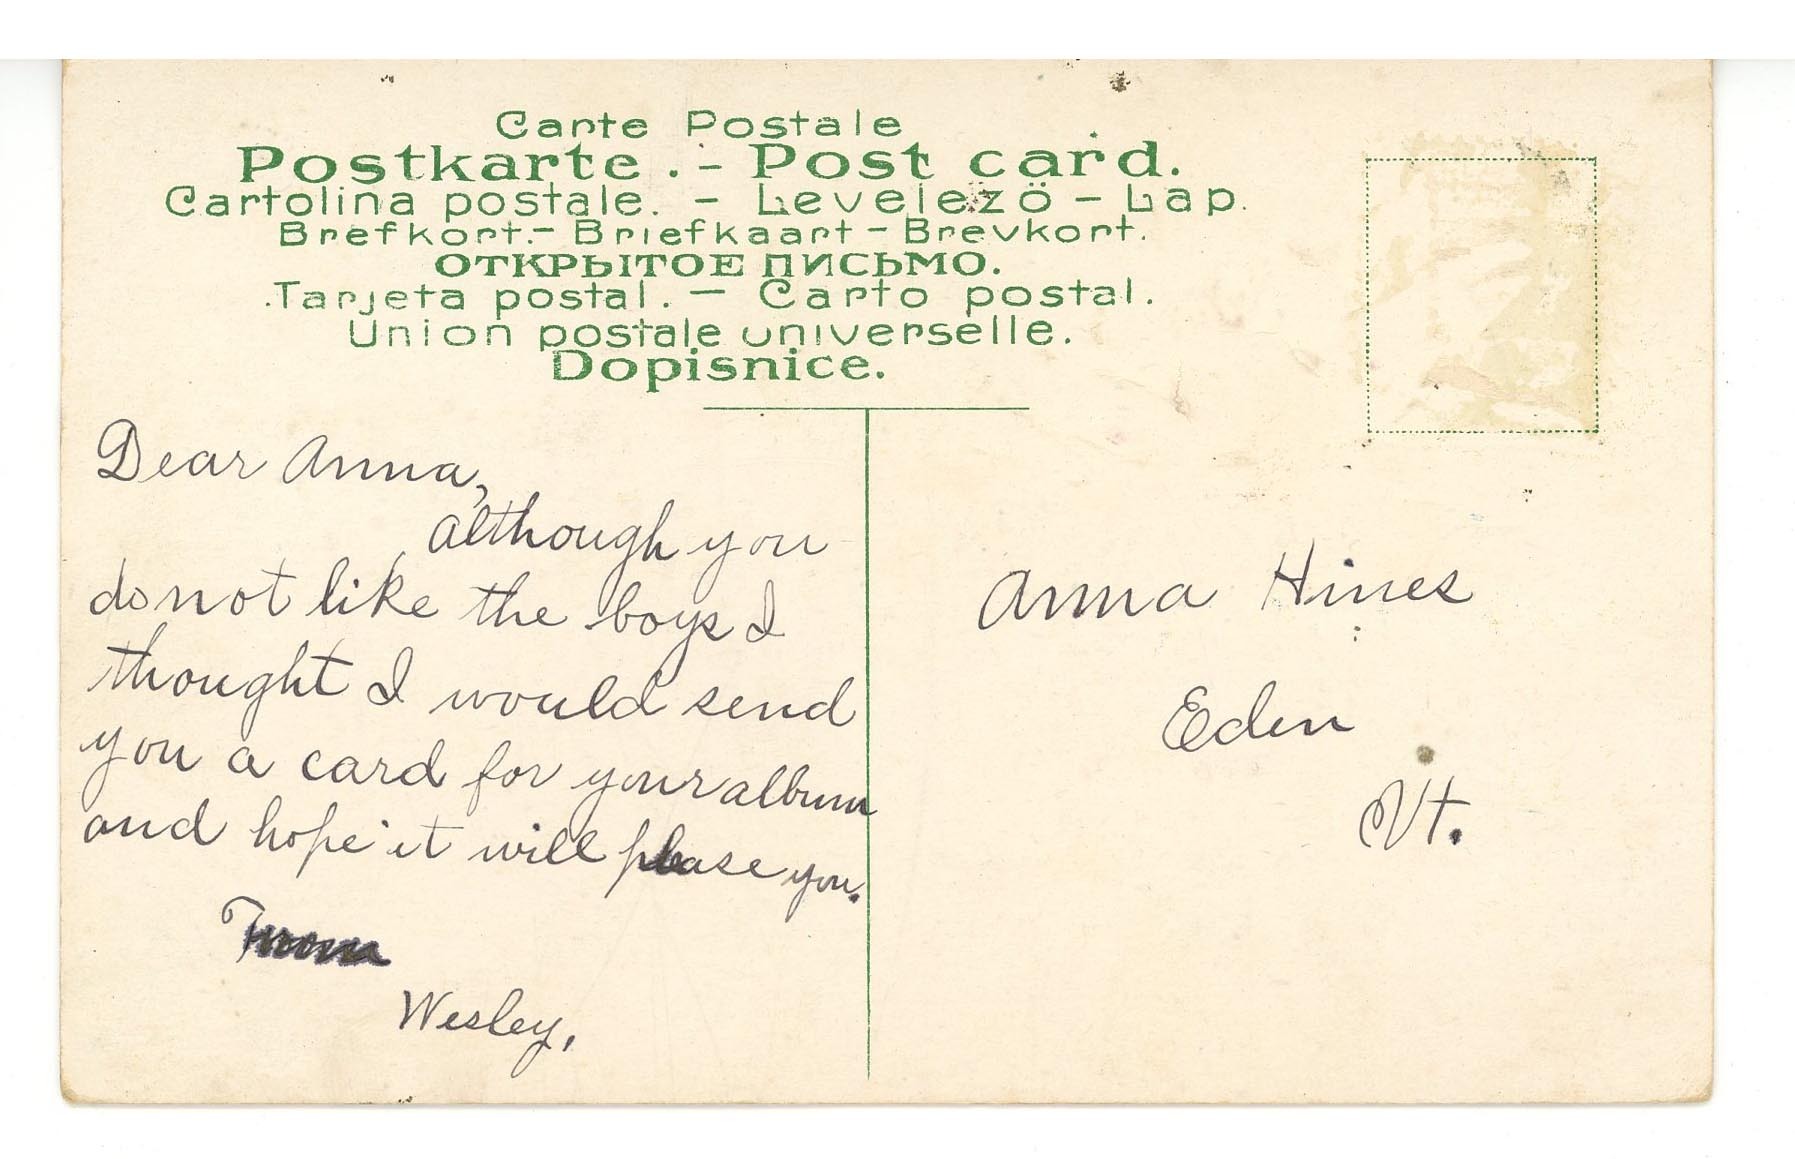 Carte Postale
Postkarte . - Post card.
Cartolina postale. - Levelezö - Lap.
Brefkort.- Briefkaart - Brevkort.
ОТКРЫТОЕ ПИСЬМО.
.Tarjeta postal. - Carto postal.
Union postale universelle.
Dopisnice.
Dear Anna,
although you
do not like the boys I
thought I would send
you a card for your album
and hope it will please you.
From
Wesley,
Anna Hines
Eden
Vt.